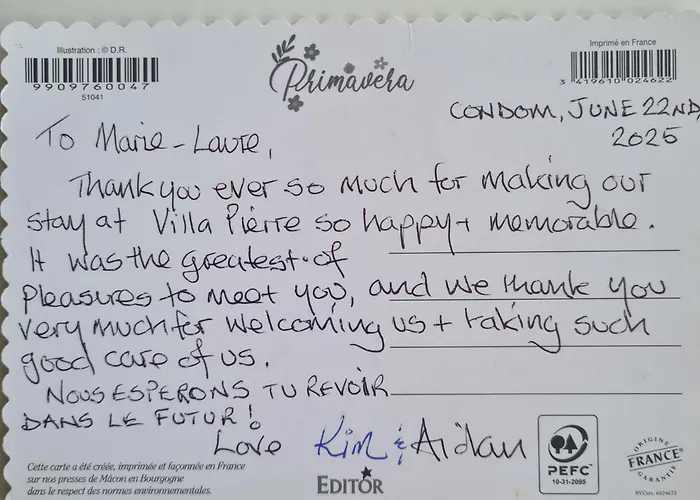 Illustration : © D.R.
9909760047
51041
Primavera
Imprimé en France
3 419610 024622
CONDOM, JUNE 22ND,
2025
To Marie-Laure,
Thank you ever so much for making our
stay at Villa Pierre so happy + memorable.
It was the greatest of
pleasures to meet you, and we thank you
very much for welcoming us + taking such
good care of us.
NOUS ESPERONS TU REVOIR
DANS LE FUTUR!
Love Kim & Aidan
Cette carte a été créée, imprimée et façonnée en France
sur nos presses de Mâcon en Bourgogne
dans le respect des normes environnementales.
EDITOR
PEFC
10-31-2095
ORIGINE
FRANCE
GARANTIE